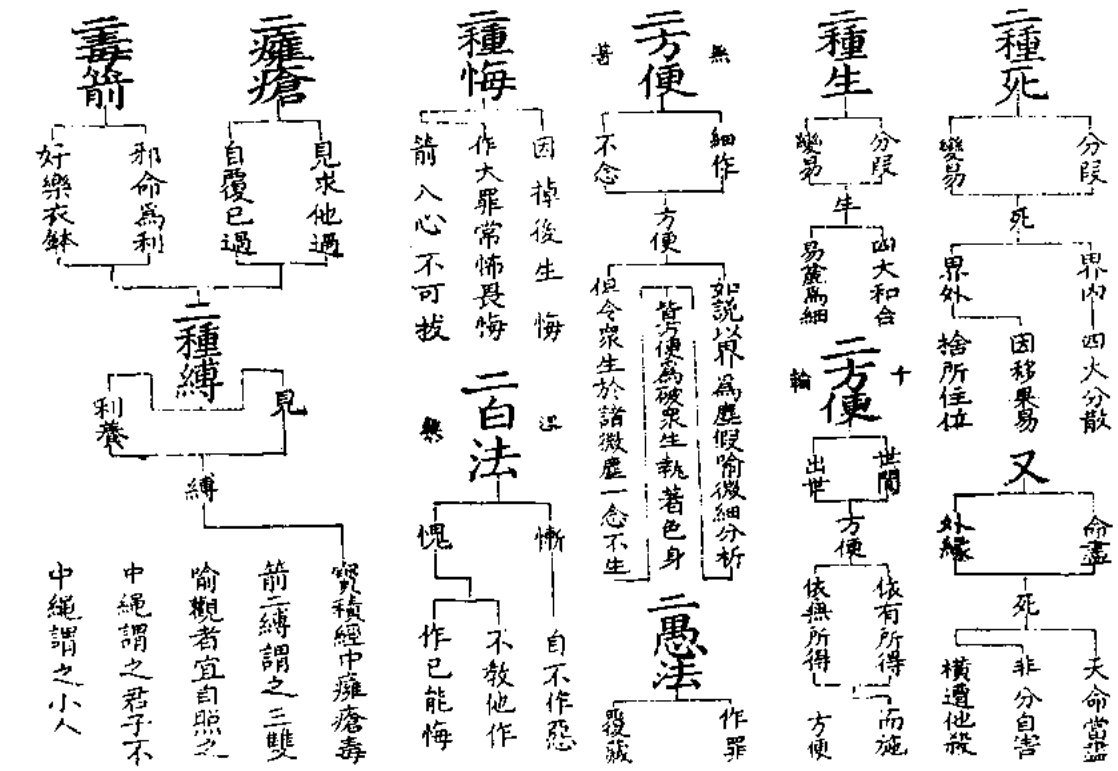 二種死
分段
變易
死
界內
四大分散
界外
因移果易
捨所住位
又
命盡
外緣
死
天命當盡
非分自害
橫遭他殺
二種生
分段
變易
生
四大和合
易麁爲細
二方便
十
輪
世間
出世
方便
依有所得
依無所得
而施
方便
二方便
無
著
細作
不念
方便
如說以界爲塵假喻微細分析
皆方便爲破衆生執著色身
但令衆生於諸微塵一念不生
二愚法
作罪
覆藏
二種悔
因掉後生悔
作大罪常怖畏悔
箭入心不可拔
二白法
慚
愧
自不作惡
不教他作
作已能悔
二癰瘡
見求他過
自覆已過
二毒箭
邪命爲利
好樂衣鉢
二種縛
見
利養
縛
寶積經中癰瘡毒
箭二縛謂之三雙
喻觀者宜自照之
中繩謂之君子不
中繩謂之小人